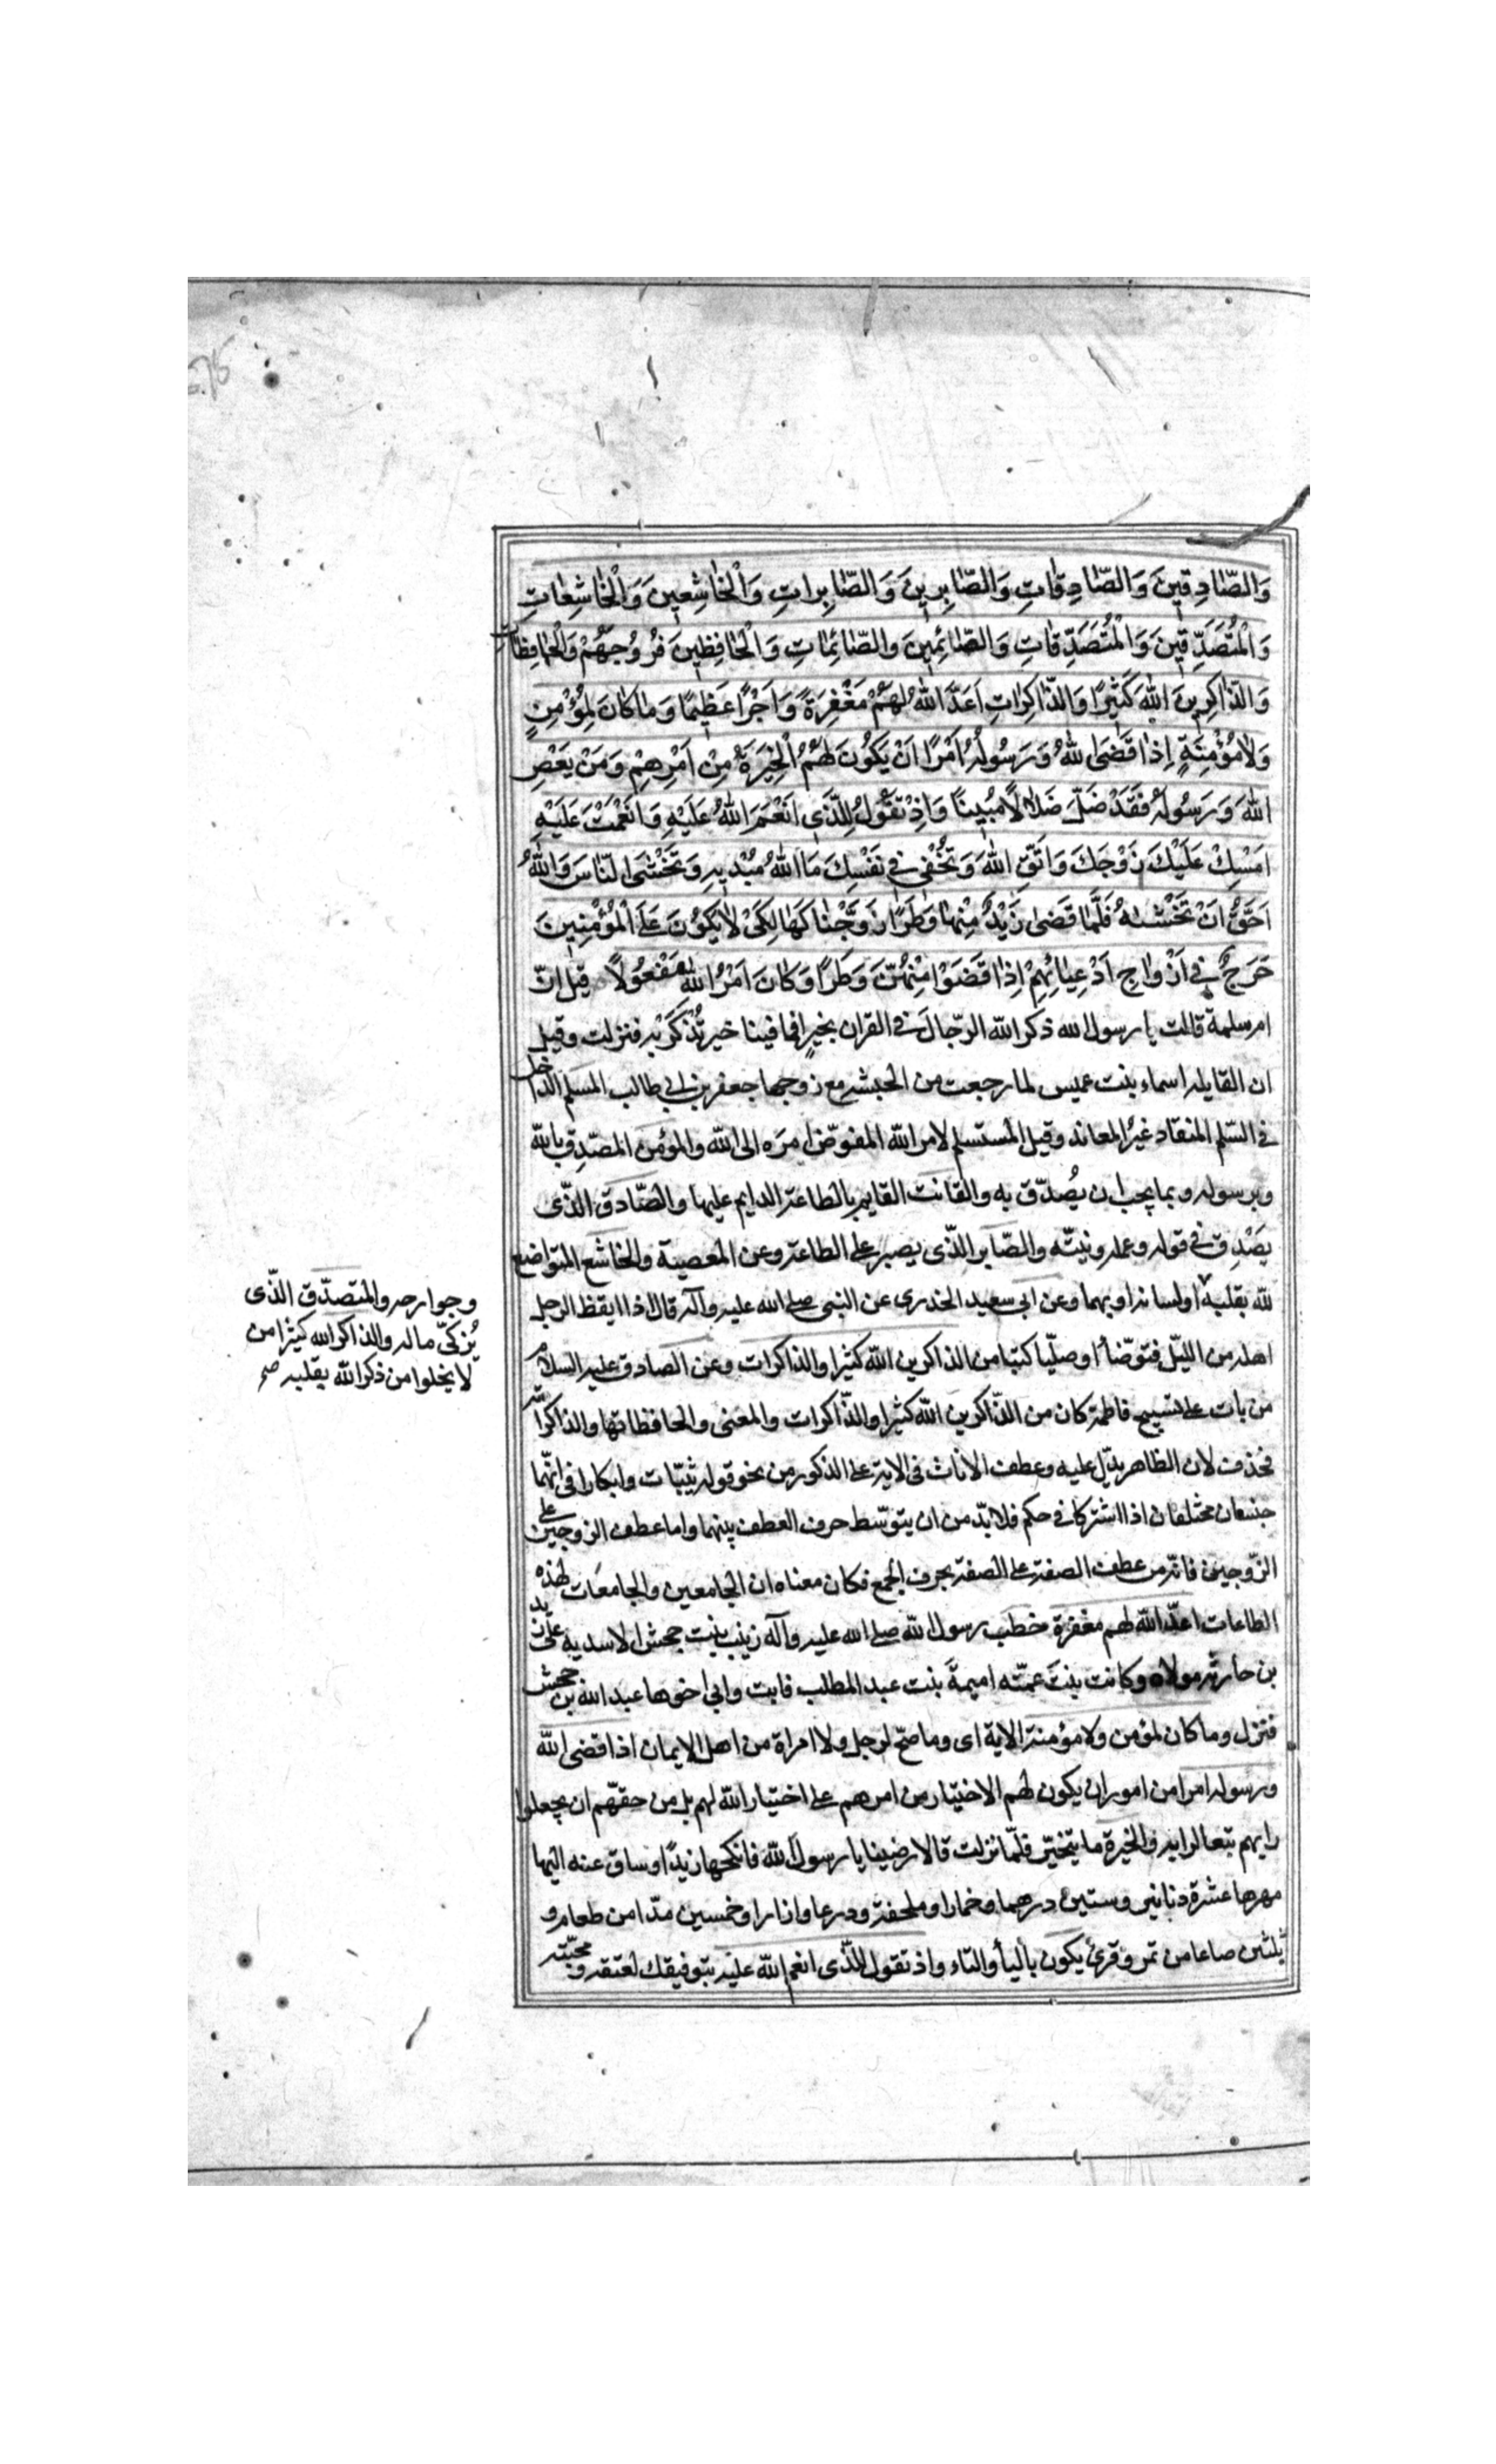 وَالصّٰادِقٖينَ وَالصّٰادِقٰاتِ وَالصّٰابِرٖينَ وَالصّٰابِرٰاتِ وَالْخٰاشِعٖينَ وَالْخٰاشِعٰاتِ
وَالْمُتَصَدِّقٖينَ وَالْمُتَصَدِّقٰاتِ وَالصّٰائِمٖينَ والصّٰائِمٰاتِ وَالْحٰافِظٖينَ فُرُوجَهُمْ وَالْحٰافِظٰاتِ
وَالذّٰاكِرٖينَ اللّٰهَ كَثٖيرًا وَالذّٰاكِرٰاتِ اَعَدَّ اللّٰهُ لَهُمْ مَغْفِرَةً وَاَجْرًا عَظٖيمًا وَمٰا كٰانَ لِمُؤْمِنٍ
وَلٰا مُؤْمِنَةٍ اِذٰا قَضَى اللّٰهُ وَرَسُولُهُ اَمْرًا اَنْ يَكُونَ لَهُمُ الْخِيَرَةُ مِنْ اَمْرِهِمْ وَمَنْ يَعْصِ
اللّٰهَ وَرَسُولَهُ فَقَدْ ضَلَّ ضَلٰالًا مُبٖينًا وَاِذْ تَقُولُ لِلَّذٖى اَنْعَمَ اللّٰهُ عَلَيْهِ وَاَنْعَمْتَ عَلَيْهِ
اَمْسِكْ عَلَيْكَ زَوْجَكَ وَاتَّقِ اللّٰهَ وَتُخْفٖى فٖى نَفْسِكَ مَا اللّٰهُ مُبْدٖيهِ وَتَخْشَى النّٰاسَ وَاللّٰهُ
اَحَقُّ اَنْ تَخْشٰىهُ فَلَمّٰا قَضٰى زَيْدٌ مِنْهٰا وَطَرًا زَوَّجْنٰاكَهٰا لِكَىْ لٰا يَكُونَ عَلَى الْمُؤْمِنٖينَ
حَرَجٌ فٖى اَزْوٰاجِ اَدْعِيٰائِهِمْ اِذٰا قَضَوْا مِنْهُنَّ وَطَرًا وَكٰانَ اَمْرُ اللّٰهِ مَفْعُولًا قيل انّ
ام سلمة قالت يا رسول الله ذكر الله الرّجالَ فى القران بخيرٍ افما فينا خير نُذكَرُ به فنزلت وقيل
ان القايله اسماء بنت عميس لما رجعت من الحبشه مع زوجها جعفر بن ابى طالب المسلم الداخل
فى السّلم المنقاد غيرُ المعاند وقيل المستسلم لامر الله المفوّض امرَه الى الله والمؤمن المصّدِق بالله
وبرسوله وبما يجب ان يُصدّق به والقانت القايم بالطاعة الدايم عليها والصّادق الذّى
يصْدِق فى قوله وعمله ونيتّه والصّابر الذّى يصبر على الطاعة وعن المعصية والخاشع المتواضع
لله بقلبه اولسانه او بهما وعن ابى سعيد الخدرى عن النبى صلى الله عليه وآله قال اذا ايقظ الرجل
اهله من الليّل فتوضّأا وصلّيا كتبا من الذاكرين الله كثيرا والذاكرات وعن الصادق عليه السلام
من بات على تسبيح فاطمة كان من الذّاكرين الله كثيرا والذّاكرات والمعنى والحافظاتها والذاكرا
فحذفت لان الظاهر يدّل عليه وعطف الاناث فى الاية على الذكور من نحو قوله ثيّبات وابكارا فى انّهما
جنسان مختلفان اذا اشتركا فى حكم فلا بدّ من ان يتوسّط حرف العطف بينهما واما عطف الزوجين على
الزّوجين فانّه من عطف الصفة على الصفة بحرف الجمع فكان معناه ان الجامعين والجامعات لهذه
الطاعات اعدّ الله لهم مغفرة خطب رسول الله صلى الله عليه وآله زينب بنت جحش الاسديه على زيد
بن حارثة مولاه وكانت بنتَ عمّته اميمةَ بنت عبد المطلب فابت وابى اخوها عبد الله بن جحش
فنزل وما كان لمؤمن ولا مؤمنة الاية اى وما صحّ لرجل ولا امراة من اهل الايمان اذا قضى الله
ورسوله امرا من امور ان يكون لهم الاختيار من امرهم على اختيار الله لهم بل من حقهّم ان يجعلوا
رايهم تبعا لرايه والخيرة ما يتخيّر فلمّا نزلت قالا رضينا يا رسول الله فانكحها زيدًا وساق عنه اليها
مهرها عشرة دنانير وستين درهما وخمارا وملحفة ودرعا وازارا وخمسين مدّا من طعام و
ثلثين صاعا من تمر وقرئ يكون بالياء والتاء واذ تقول للذّى انعم الله عليه بتوفيقك لعتقه ومحبّته
وجوارحه والمتصدّق الذّى
يُزكىّ ماله والذاكر الله كثيرا من
لا يخلوا من ذكر الله بقلبه صح